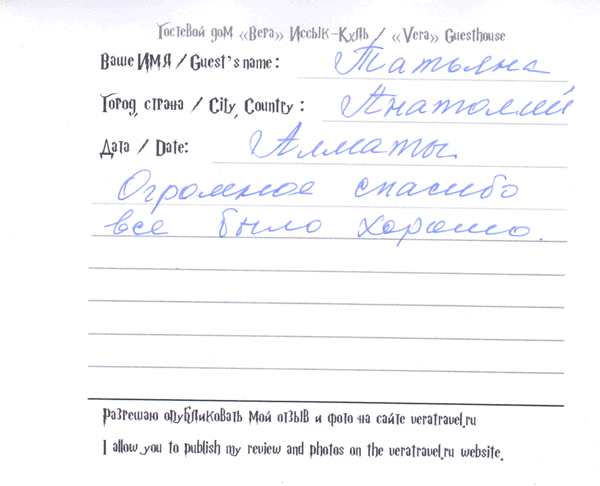 Гостевой дом «Вера» Иссык-Куль / «Vera» Guesthouse
Ваше ИМЯ / Guest's name: Татьяна
Город, страна / City, Country : Анатолий
Дата / Date: Алматы
Огромное спасибо
все было хорошо.
Разрешаю опубликовать мой отзыв и фото на сайте veratravel.ru
I allow you to publish my review and photos on the veratravel.ru website.